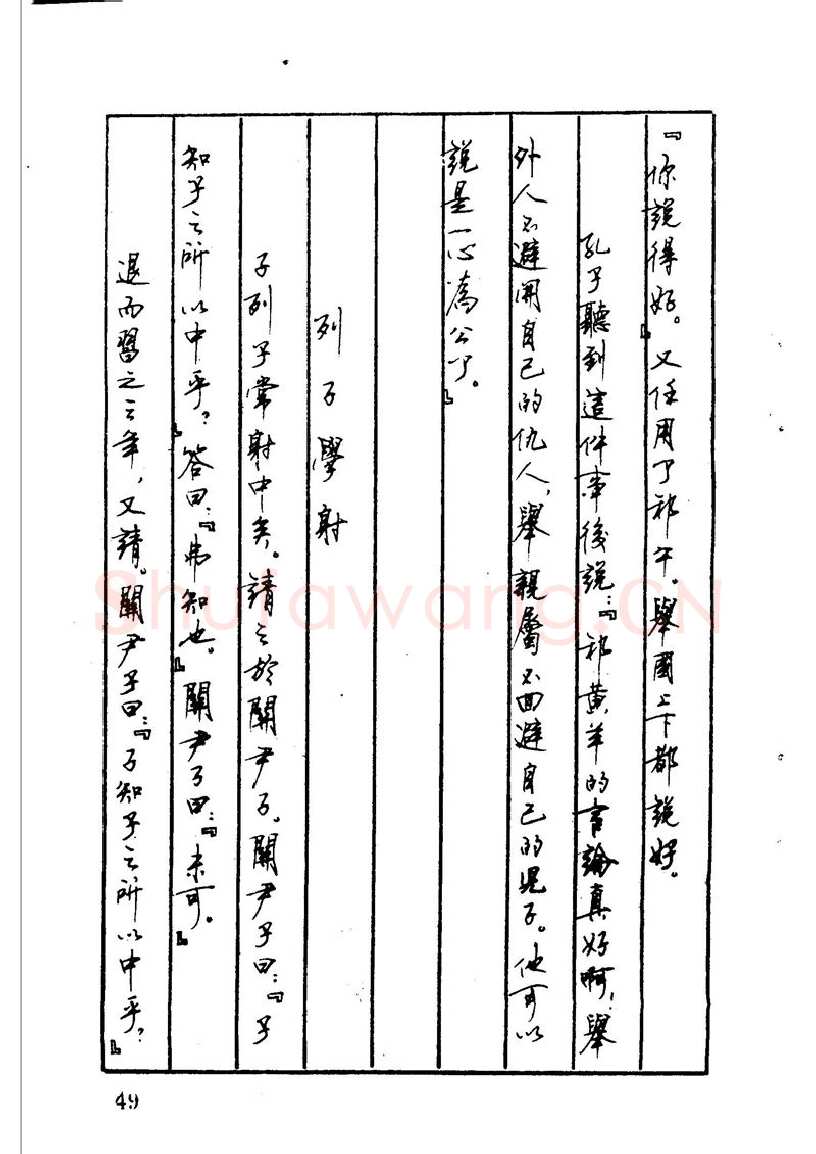 『你說得好。』又任用了祁午。舉國上下都說好。
孔子聽到這件事後說：『祁黃羊的言論真好啊！舉
外人不避開自己的仇人，舉親屬不回避自己的兒子。他可以
說是一心為公了。』
列子學射
子列子常射中矣。請之於關尹子。關尹子曰：『子
知子之所以中乎？』答曰：『弗知也。』關尹子曰：『未可。』
退而習之三年，又請。關尹子曰：『子知子之所以中乎？』
49
Shufawang.CN